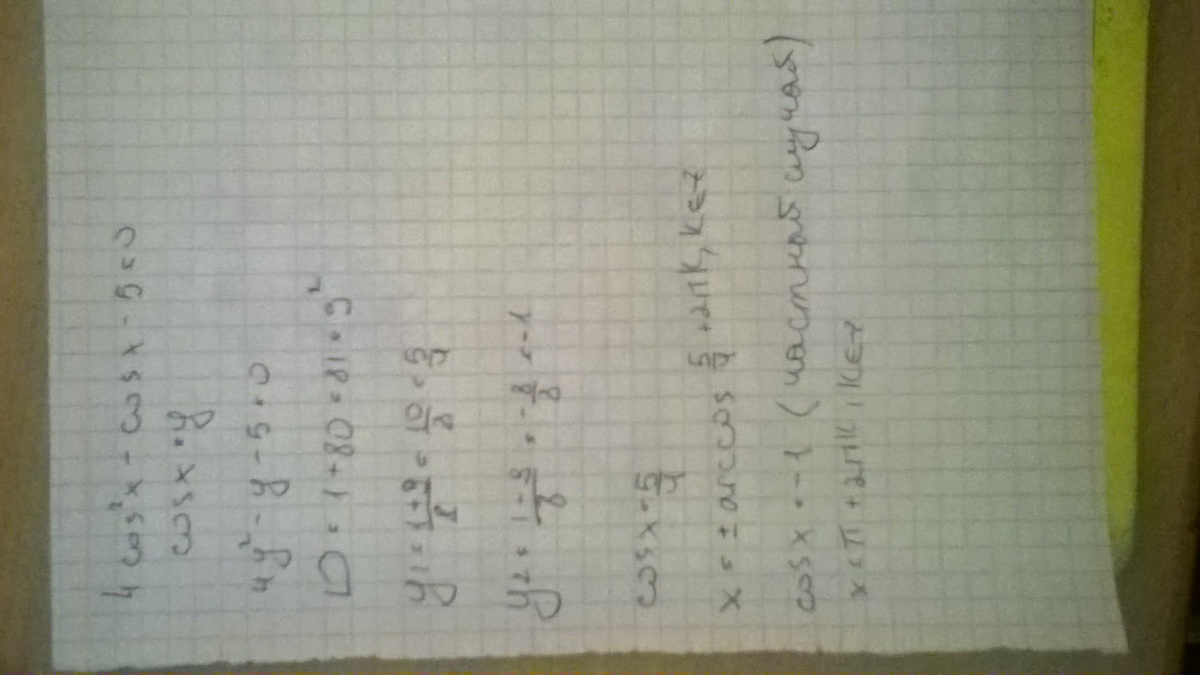 4 cos²x - cos x - 5 = 0
cos x = y
4y² - y - 5 = 0
D = 1 + 80 = 81 = 9²
y1 = (1+9)/8 = 10/8 = 5/4
y2 = (1-9)/8 = -8/8 = -1
cos x = 5/4
x = ± arccos 5/4 + 2πk, k∈z
cos x = -1 (частный случай)
x = π + 2πk, k∈z